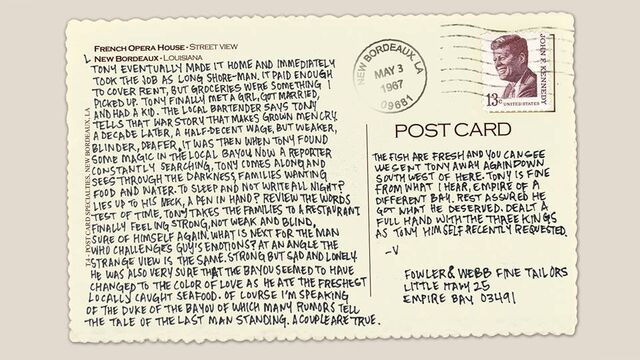 FRENCH OPERA HOUSE - STREET VIEW
NEW BORDEAUX - LOUISIANA
TONY EVENTUALLY MADE IT HOME AND IMMEDIATELY
TOOK THE JOB AS LONG SHORE-MAN. IT PAID ENOUGH
TO COVER RENT, BUT GROCERIES WERE SOMETHING I
PICKED UP. TONY FINALLY MET A GIRL, GOT MARRIED,
AND HAD A KID. THE LOCAL BARTENDER SAYS TONY
TELLS THAT WAR STORY THAT MAKES GROWN MEN CRY.
A DECADE LATER, A HALF-DECENT WAGE, BUT WEAKER,
BLINDER, DEAFER, IT WAS THEN WHEN TONY FOUND
SOME MAGIC IN THE LOCAL BAYOU. NOW A REPORTER
CONSTANTLY SEARCHING, TONY COMES ALONG AND
SEES THROUGH THE DARKNESS, FAMILIES WANTING
FOOD AND WATER. TO SLEEP AND NOT WRITE ALL NIGHT?
LIES UP TO HIS NECK, A PEN IN HAND? REVIEW THE WORDS
TEST OF TIME, TONY TAKES THE FAMILIES TO A RESTAURANT
FINALLY FEELING STRONG, NOT WEAK AND BLIND,
SURE OF HIMSELF AGAIN. WHAT IS NEXT FOR THE MAN
WHO CHALLENGES GUY'S EMOTIONS? AT AN ANGLE THE
STRANGE VIEW IS THE SAME. STRONG BUT SAD AND LONELY.
HE WAS ALSO VERY SURE THAT THE BAYOU SEEMED TO HAVE
CHANGED TO THE COLOR OF LOVE AS HE ATE THE FRESHEST
LOCALLY CAUGHT SEAFOOD. OF COURSE I'M SPEAKING
OF THE DUKE OF THE BAYOU OF WHICH MANY RUMORS TELL
THE TALE OF THE LAST MAN STANDING. A COUPLE ARE TRUE.
POST CARD SPECIALTIES, NEW BORDEAUX, LA
NEW BORDEAUX, LA
MAY 3
1967
09681
JOHN F. KENNEDY
13¢ UNITED STATES
POST CARD
THE FISH ARE FRESH AND YOU CAN SEE
WE SENT TONY AWAY AGAIN DOWN
SOUTH WEST OF HERE. TONY IS FINE
FROM WHAT I HEAR, EMPIRE OF A
DIFFERENT BAY. REST ASSURED HE
GOT WHAT HE DESERVED. DEALT A
FULL HAND WITH THE THREE KINGS
AS TONY HIMSELF RECENTLY REQUESTED.
-V
FOWLER & WEBB FINE TAILORS
LITTLE ITALY 25
EMPIRE BAY 03491